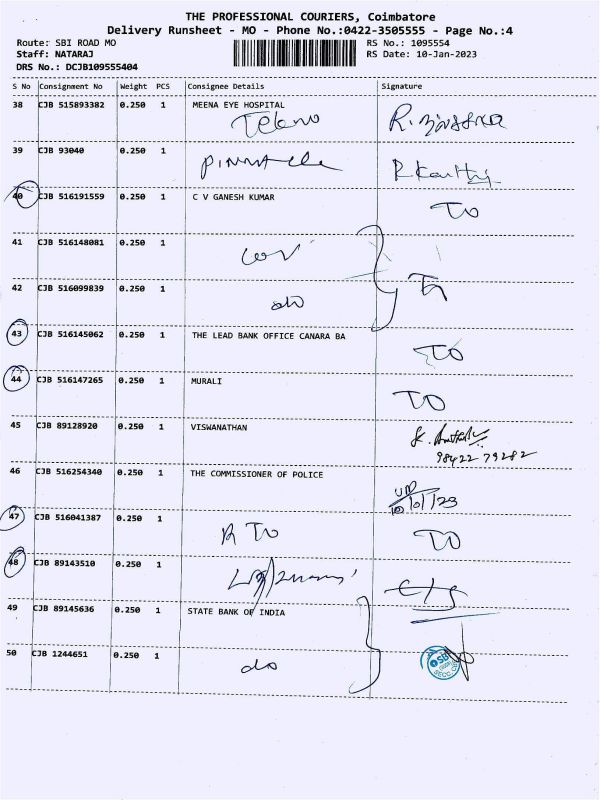 THE PROFESSIONAL COURIERS, Coimbatore
Delivery Runsheet - MO - Phone No.:0422-3505555 - Page No.:4
Route: SBI ROAD MO
Staff: NATARAJ
DRS No.: DCJB109555404
RS No.: 1095554
RS Date: 10-Jan-2023
S No Consignment No Weight PCS Consignee Details Signature
38 CJB 515893382 0.250 1 MEENA EYE HOSPITAL
39 CJB 93040 0.250 1
40 CJB 516191559 0.250 1 C V GANESH KUMAR
TO
41 CJB 516148081 0.250 1
42 CJB 516099839 0.250 1
do
43 CJB 516145062 0.250 1 THE LEAD BANK OFFICE CANARA BA
TO
44 CJB 516147265 0.250 1 MURALI
TO
45 CJB 89128920 0.250 1 VISWANATHAN
98422 79282
46 CJB 516254340 0.250 1 THE COMMISSIONER OF POLICE
10/01/23
47 CJB 516041387 0.250 1 RTO
TO
48 CJB 89143510 0.250 1
49 CJB 89145636 0.250 1 STATE BANK OF INDIA
50 CJB 1244651 0.250 1 do
SBI